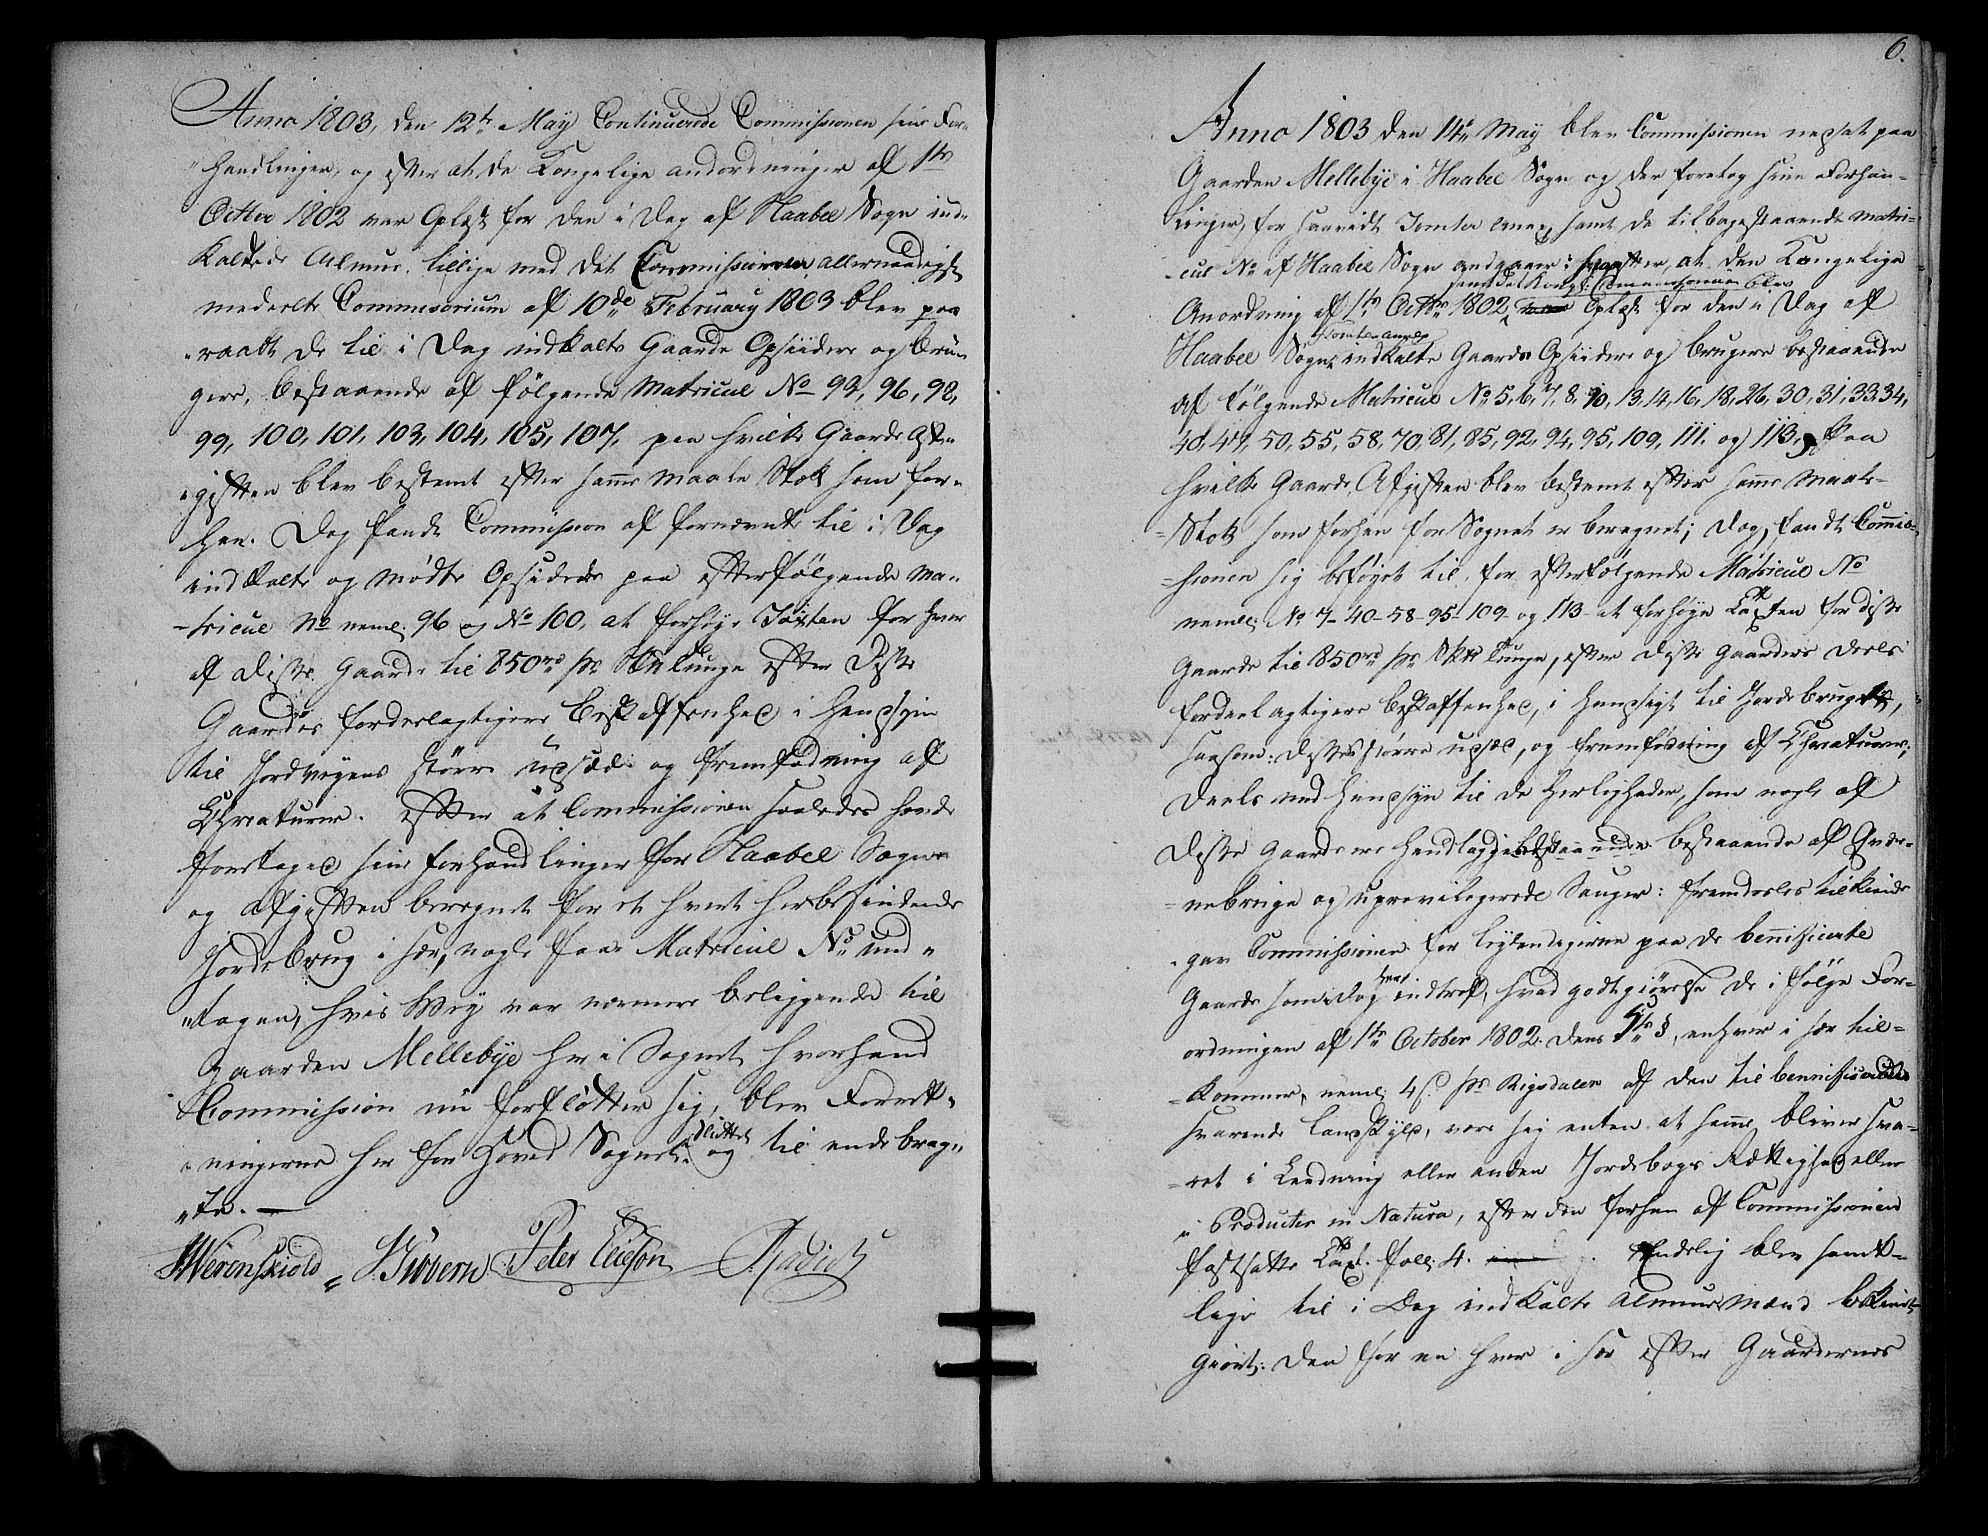 Anno 1803, den 12te May Continuerede Commissionen sine For-
handlinger, og efter at de Kongelige anordninger af 1te
Octbr 1802 var Oplæst for den i Dag af Haabøl Sogn ind-
kaldede Almue, tillige med det Commissionen allernaadigst
meddelte Commissorium af 10de February 1803 blev paa
raabt de til i Dag indkalte Gaarde Opsiddere og Bru-
gere, bestaaende af følgende Matricul No 93, 96, 98,
99, 100, 101, 103, 104, 105, 107, paa hvilke Gaarde Af-
giften blev bestemt efter samme Maale Stok som for-
hen. Dog fandt Commission af fornævnte til i Dag
indkalte og mødte Opsiddere paa efterfølgende Ma-
tricul No neml. 96 og No 100, at forhøye Taxten for hver
af disse Gaarde til 850rd pr Skds tunge efter disse
Gaardes fordeelagtigere Beskaffenhed i Hensyn
til Jordveyens større Udsæd og fremfødning af
Creaturer. Efter at Commissionen saaledes havde
foretaget sine forhandlinger for Haabøl Sogn
og Afgiften beregnet for et hvert herbefindende
Jordebrug i sær, nogle faae Matricul No und-
tagen, hvis Vey var nærmere beliggende til
Gaarden Mellebye her i Sognet, hvorhend
Commission nu forfløtter sig, blev Forret-
ningerne her for Hoved Sognet sluttet og til ende brag-
te. —
Werenskiold S: Sibbern Peter Elieson
6.
Anno 1803 den 14de May blev Commissionen nedsat paa
Gaarden Mellebye i Haabøl Sogn og der foretog sine Forhan-
linger, for saavidt Tomter Anex, samt de tilbagestaaende Matri-
cul No af Haabøl Sogn andgaaer: hvorefter, at den Kongelige
samt det Kongl: Commissorium blev
Anordning af 1te Octbr 1802 Oplæst for den i Dag af
Tomter Anex
Haabøl Sogn indkalte Gaarde Opsiddere og Brugere bestaaende
af følgende Matricul No 5, 6, 7, 8, 10, 13, 14, 16, 18, 26, 30, 31, 33, 34,
40, 47, 50, 55, 58, 70, 81, 85, 92, 94, 95, 109, 111. og 113, Paa
hvilke Gaarde, Afgiften blev bestemt efter samme Maale-
Stok som forhen for Sognet er beregnet; dog, fandt Commis-
sionen sig beføyet til, for efterfølgende Matricul No
nemlig No 7 - 40 - 58 - 95 - 109 - og 113 - at forhøye Taxten for disse
Gaarde til 850rd pr Skds tunge, efter disse Gaarders deels
fordeelagtigere Beskaffenhed, i Hensigt til Jordebruget,
saasom: Dessens større udsæd, og fremfødning af Creaturer,
Deels med Hensyn til de Herligheder, som nogle af
disse Gaardene ere bestaaende af Qvær-
nebruge og uprivilegerede Sauger: fremdeeles tilkiende-
gav Commissionen for Leylendingerne paa de beneficerte
Gaarde som i Dag her indtraf, hvad godtgiørelse de i følge For-
ordningen af 1te October 1802. dens 5te §, enhver i sær til-
kommer, neml. 4 s. pr Rigsdaler af den til beneficierede
svarende Landskyld, være sig enten at samme bliver sva-
ret i Leedning eller anden Jordebogs Rettighed eller
i Producter in Natura, efter den forhen af Commissionen
fastsatte Taxt. foll: 4. Endelig blev samt-
lige til i Dag indkalte Almues Mænd bekiendt-
giort: den for en hver i sær efter Gaardernes